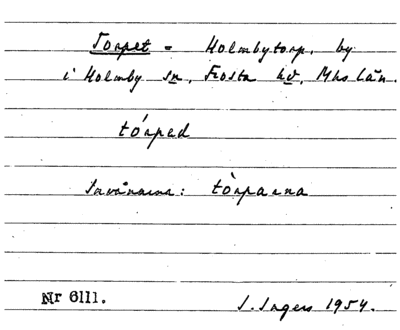 Torpet = Holmbytorp, by
i Holmby sn, Frosta hd, Mhs län.
tórped
Invånarna: tòrparna
Nr 6111.
I. Ingers 1954.